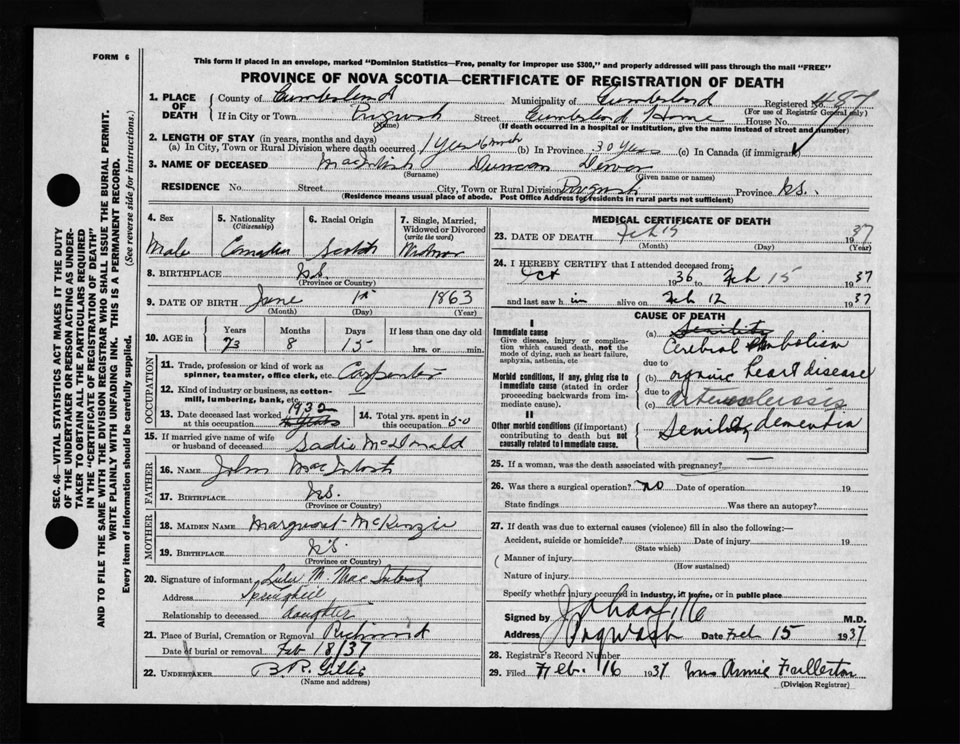 FORM 6
This form if placed in an envelope, marked "Dominion Statistics—Free, penalty for improper use $300," and properly addressed will pass through the mail "FREE"
PROVINCE OF NOVA SCOTIA—CERTIFICATE OF REGISTRATION OF DEATH
1. PLACE OF DEATH
County of Cumberland Municipality of Cumberland Registered No. 497
(For use of Registrar General only)
If in City or Town Pugwash Street Cumberland Home House No.
(Name) (If death occurred in a hospital or institution, give the name instead of street and number)
2. LENGTH OF STAY (in years, months and days)
(a) In City, Town or Rural Division where death occurred 1 Year 6 mnth (b) In Province 30 Yrs (c) In Canada (if immigrant)
3. NAME OF DECEASED MacIntosh Duncan
(Surname) (Given name or names)
RESIDENCE No. Street City, Town or Rural Division Pugwash Province N.S.
(Residence means usual place of abode. Post Office Address for residents in rural parts not sufficient)
4. Sex
Male
5. Nationality
(Citizenship)
Canadian
6. Racial Origin
Scotch
7. Single, Married, Widowed or Divorced
(write the word)
Widower
8. BIRTHPLACE N.S.
(Province or Country)
9. DATE OF BIRTH June 1st 1863
(Month) (Day) (Year)
10. AGE in Years Months Days If less than one day old
73 8 15 hrs. or min.
OCCUPATION
11. Trade, profession or kind of work as spinner, teamster, office clerk, etc. Carpenter
12. Kind of industry or business, as cotten-mill, lumbering, bank, etc.
13. Date deceased last worked at this occupation 1932
14. Total yrs. spent in this occupation 50
15. If married give name of wife or husband of deceased Sadie McDonald
FATHER
16. NAME John MacIntosh
17. BIRTHPLACE N.S.
(Province or Country)
MOTHER
18. MAIDEN NAME Margaret McKenzie
19. BIRTHPLACE N.S.
(Province or Country)
20. Signature of informant Lulu M. MacIntosh
Address Springhill
Relationship to deceased daughter
21. Place of Burial, Cremation or Removal Richmond
Date of burial or removal Feb 18/37
22. UNDERTAKER B. R. Gillis
(Name and address)
MEDICAL CERTIFICATE OF DEATH
23. DATE OF DEATH Feb 15 1937
(Month) (Day) (Year)
24. I HEREBY CERTIFY that I attended deceased from:
Oct 1936 to Feb 15 1937
and last saw h im alive on Feb 12 1937
CAUSE OF DEATH
I
Immediate cause
Give disease, injury or complication which caused death, not the mode of dying, such as heart failure, asphyxia, asthenia, etc
(a) Senility
Cerebral Embolism
due to
Morbid conditions, if any, giving rise to immediate cause (stated in order proceeding backwards from immediate cause).
(b) organic heart disease
due to
(c) arteriosclerosis
II
Other morbid conditions (if important) contributing to death but not causally related to immediate cause.
Senility dementia
25. If a woman, was the death associated with pregnancy?
26. Was there a surgical operation? no Date of operation 19
State findings Was there an autopsy?
27. If death was due to external causes (violence) fill in also the following:—
Accident, suicide or homicide? Date of injury 19
(State which)
Manner of injury
(How sustained)
Nature of injury
Specify whether injury occurred in industry, in home, or in public place
Signed by M.D.
Address Pugwash Date Feb 15 1937
28. Registrar's Record Number
29. Filed Feb. 16 1937 Mrs Annie Fullerton
(Division Registrar)
SEC. 46—VITAL STATISTICS ACT MAKES IT THE DUTY
OF THE UNDERTAKER OR PERSON ACTING AS UNDER-
TAKER TO OBTAIN ALL THE PARTICULARS REQUIRED
IN THE "CERTIFICATE OF REGISTRATION OF DEATH"
AND TO FILE THE SAME WITH THE DIVISION REGISTRAR WHO SHALL ISSUE THE BURIAL PERMIT.
WRITE PLAINLY WITH UNFADING INK. THIS IS A PERMANENT RECORD.
Every item of information should be carefully supplied. (See reverse side for instructions.)